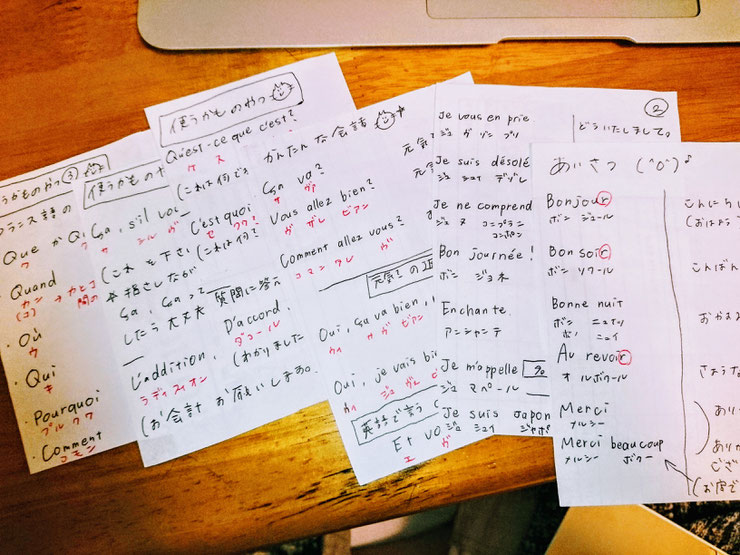 うかものやつ③
ランス語の
Que
Quand
カン
Où
ウ
Qui
キ
Pourquoi
プルクワ
Comment
コモン
使うかものや
Ça, s'il vou
サ シル ヴ
(これ を下さい
を指さしながら
Ça, Ça va
したら 大丈夫
L'addition,
ラディスィオン
(お会計 お願いします。
使うかものやつ
Qu'est-ce que c'est?
ケ ス
(これは何です
C'est quoi
セ クワ
(これは何?
質問に答え
D'accord.
ダコール
(わかりました
かんたんな会話
Ça va?
サ ヴァ
Vous allez bien?
ヴ ザレ ビアン
Comment allez vous?
コマン タレ ヴ
元気!の
Oui, ça va bien
ウィ サ ヴァ ビアン
Oui, je vais bi
ウィ ジュ ヴェ ビ
英語で言う
Et vo
エ ヴ
②
Je vous en prie
ジュ ヴ ゾン プリ
どういたしまして。
元気
Je suis désolé
ジュ シュイ デゾレ
元気
Je ne comprend
ジュ ヌ コンプラン
コンポン
Bon journée!
ボン ジョネ
Enchante.
アンシャンテ
Je m'appelle
ジュ マペール
Je suis Japon
ジュ シュイ ジャポ
あいさつ (^o^)♪
Bonjour
ボン ジュール
こんにち
(おはよう
Bon soir
ボン ソワール
こんばん
Bonne nuit
ボン ニュイッ
ボ ニュイ
おやすみ
Au revoir
オ ルボワール
さような
Merci
メルシー
あり
Merci beaucoup
メルシー ボクー
あり
ござ
(お店で